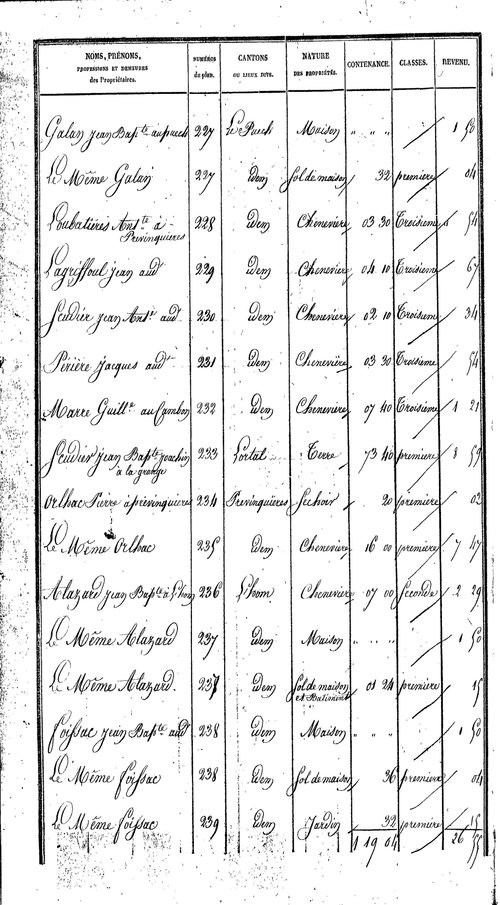 NOMS, PRÉNOMS, PROFESSIONS ET DEMEURES des Propriétaires. NUMÉROS du plan. CANTONS OU LIEUX DITS. NATURE DES PROPRIÉTÉS. CONTENANCE. CLASSES. REVENU.
Galan jean Bapte au puech 227 Le Puech Maison " " " 1 50
Le Même Galan 227 idem Sol de maison 32 première 04
Loubatières Ante à Prévinquières 228 idem Chenevière 03 30 Troisième 54
Lagriffoul jean aud 229 idem Chenevière 04 10 Troisième 67
Scudier jean Ante aud 230 idem Chenevière 02 10 Troisième 34
Périère jacques aud 231 idem Chenevière 03 30 Troisième 54
Marre Guille au Cambon 232 idem Chenevière 07 40 Troisième 1 21
Scudier jean Bapte joachin à la grange 233 L'ortal Terre 73 40 première 8 59
Orlhac Pierre à prévinquières 234 Prévinquières Sechoir 20 première 02
Le Même Orlhac 235 idem Chenevière 16 00 première 7 47
Alazard jean Bapte à L'hom 236 L'hom Chenevière 07 00 Seconde 2 29
Le Même Alazard 237 idem Maison " " " 1 50
Le Même Alazard. 237 idem Sol de maison et Batiment 01 24 première 15
Foissac jean Bapte aud 238 idem Maison " " 1 50
Le Même foissac 238 idem Sol de maison 36 première 04
Le Même foissac 239 idem Jardin 32 première 15
1 19 04 26 55